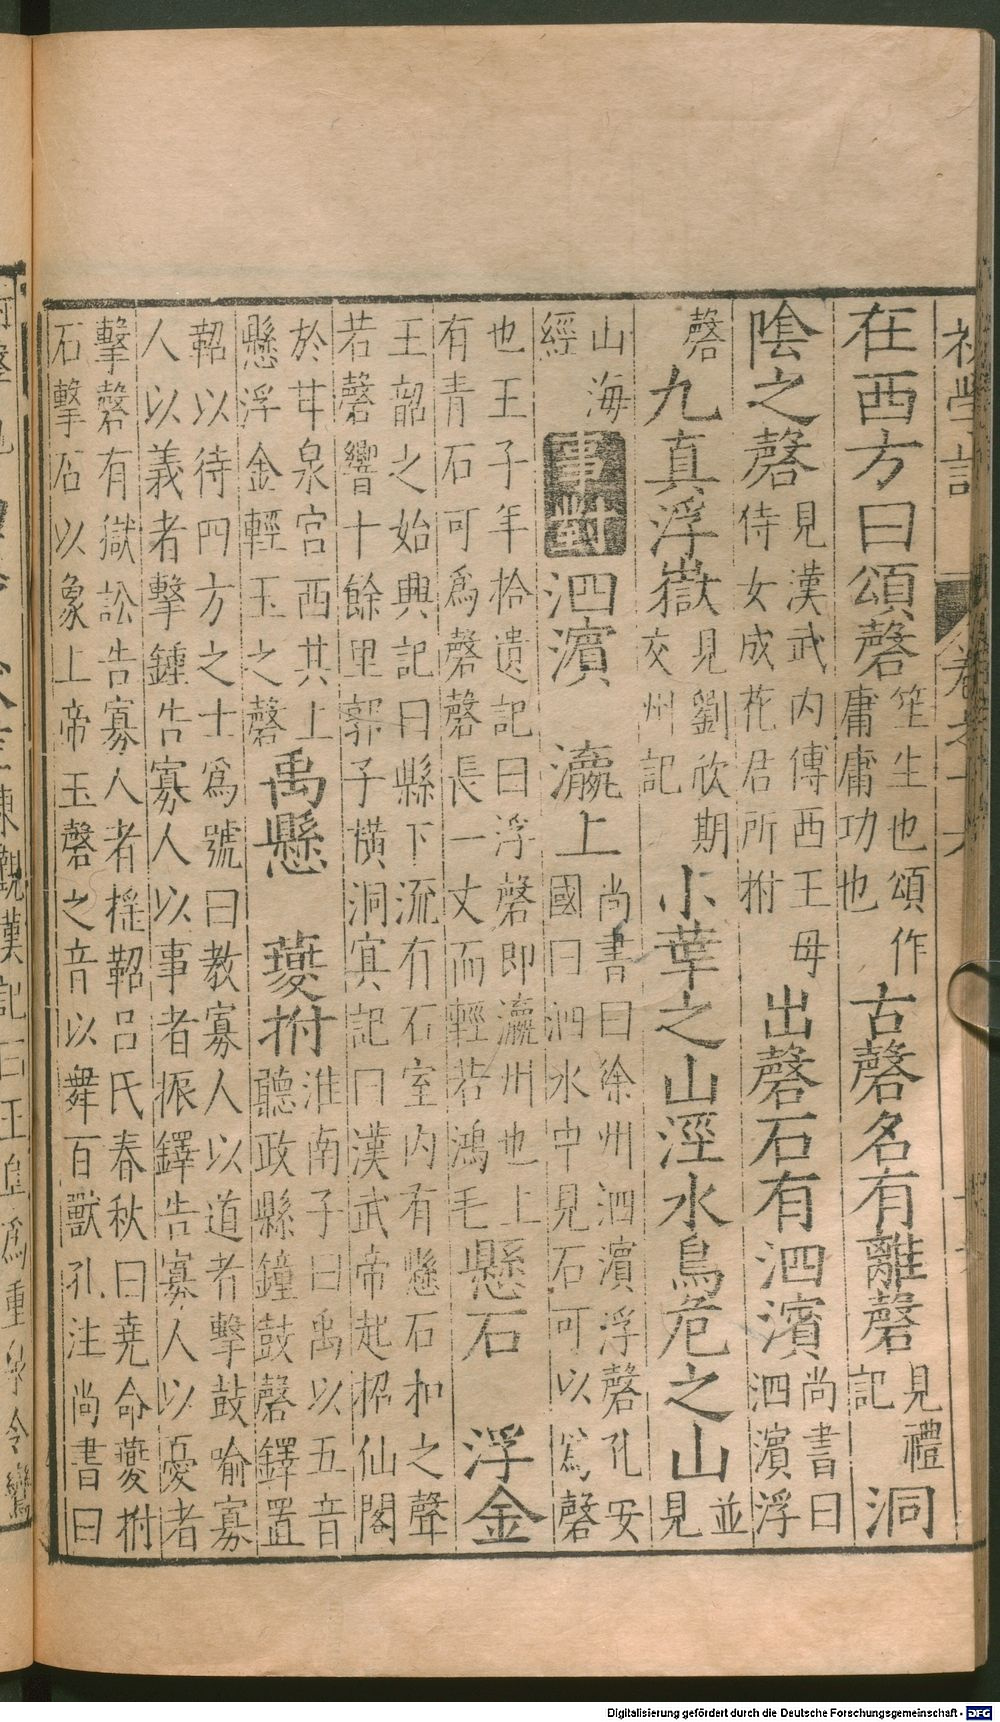 初學記 卷之十六
在西方曰頌磬笙生也頌作庸庸功也古磬名有離磬見禮記洞
陰之磬見漢武內傳西王母侍女成花君所拊出磬石有泗濱尚書曰泗濱浮
磬九真浮嶽見劉欣期交州記小華之山涇水鳥危之山並見
山海經事對泗濱 瀛上尚書曰徐州泗濱浮磬孔安國曰泗水中見石可以為磬
也王子年拾遺記曰浮磬即瀛州也上有青石可為磬磬長一丈而輕若鴻毛懸石 浮金
王韶之始興記曰縣下流有石室內有懸石扣之聲若磬響十餘里郭子橫洞冥記曰漢武帝起招仙閣
於甘泉宮西其上懸浮金輕玉之磬禹懸 夔拊淮南子曰禹以五音聽政縣鐘鼓磬鐸置
鞀以待四方之士為號曰教寡人以道者擊鼓喻寡人以義者擊鍾告寡人以事者振鐸告寡人以憂者
擊磬有獄訟告寡人者搖鞀呂氏春秋曰堯命夔拊石擊石以象上帝玉磬之音以舞百獸孔注尚書曰
Digitalisierung gefördert durch die Deutsche Forschungsgemeinschaft - DFG